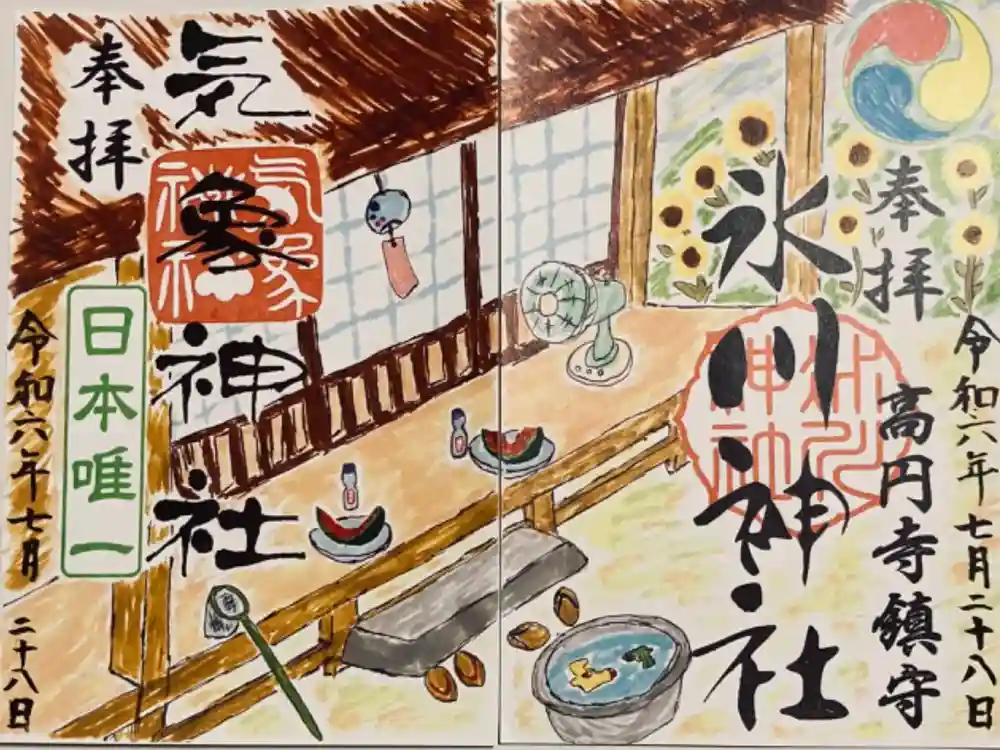 令和六年七月二十八日
奉拝
高円寺鎮守
氷川神社
気象神社
奉拝
日本唯一
令和六年七月二十八日